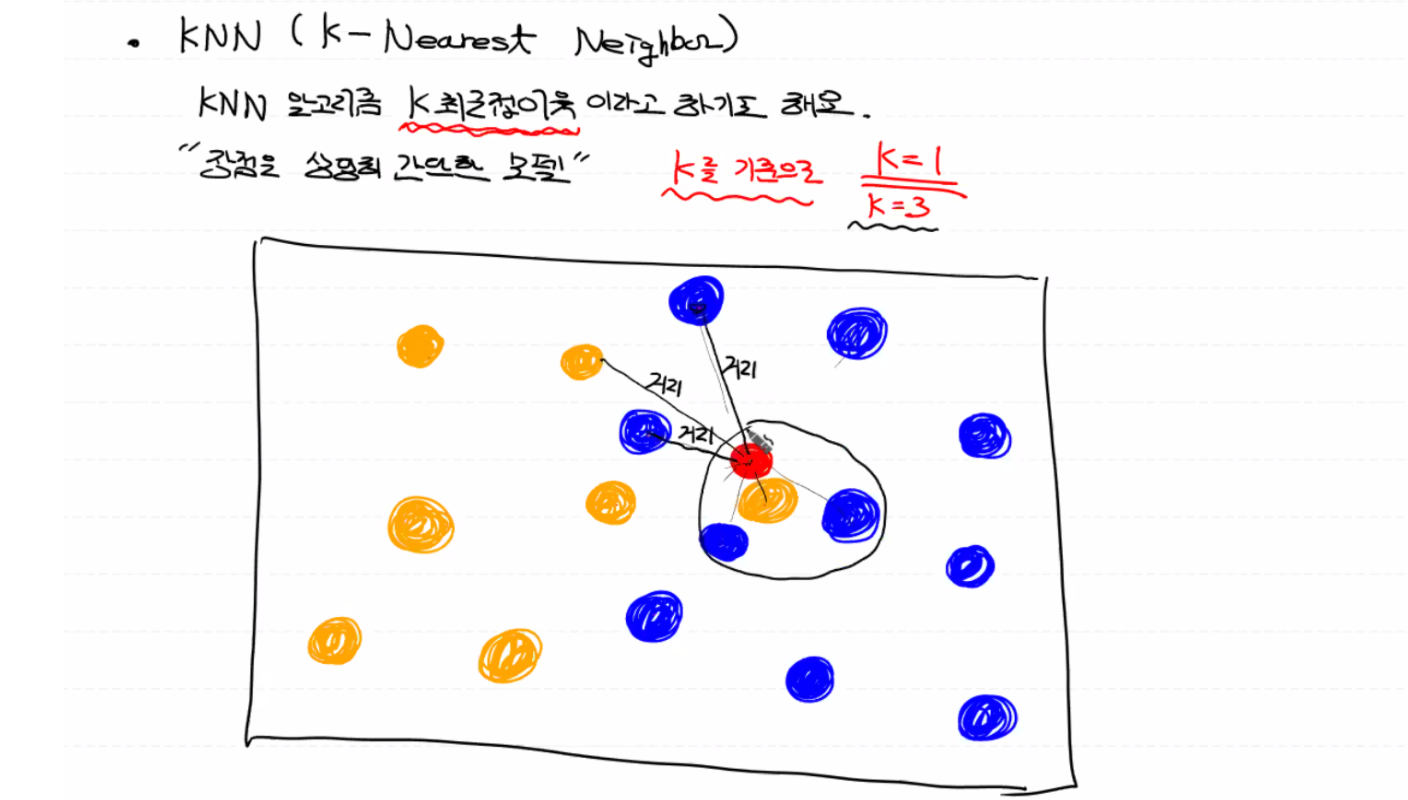 • KNN (K-Nearest Neighbor)
KNN 알고리즘 K최근접이웃 이라고 하기도 해요.
"장점은 상당히 간단한 모델"
K를 기준으로
K=1
K=3
거리
거리
거리